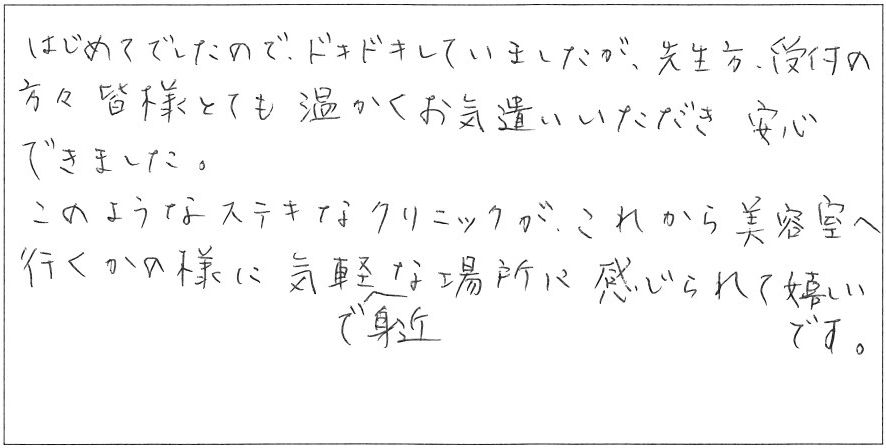 はじめてでしたので、ドキドキしていましたが、先生方、受付の
方々 皆様とても 温かくお気遣いいただき 安心
できました。
このようなステキなクリニックが、これから美容室へ
行くかの様に 気軽な場所に 感じられて嬉しい
で身近
です。